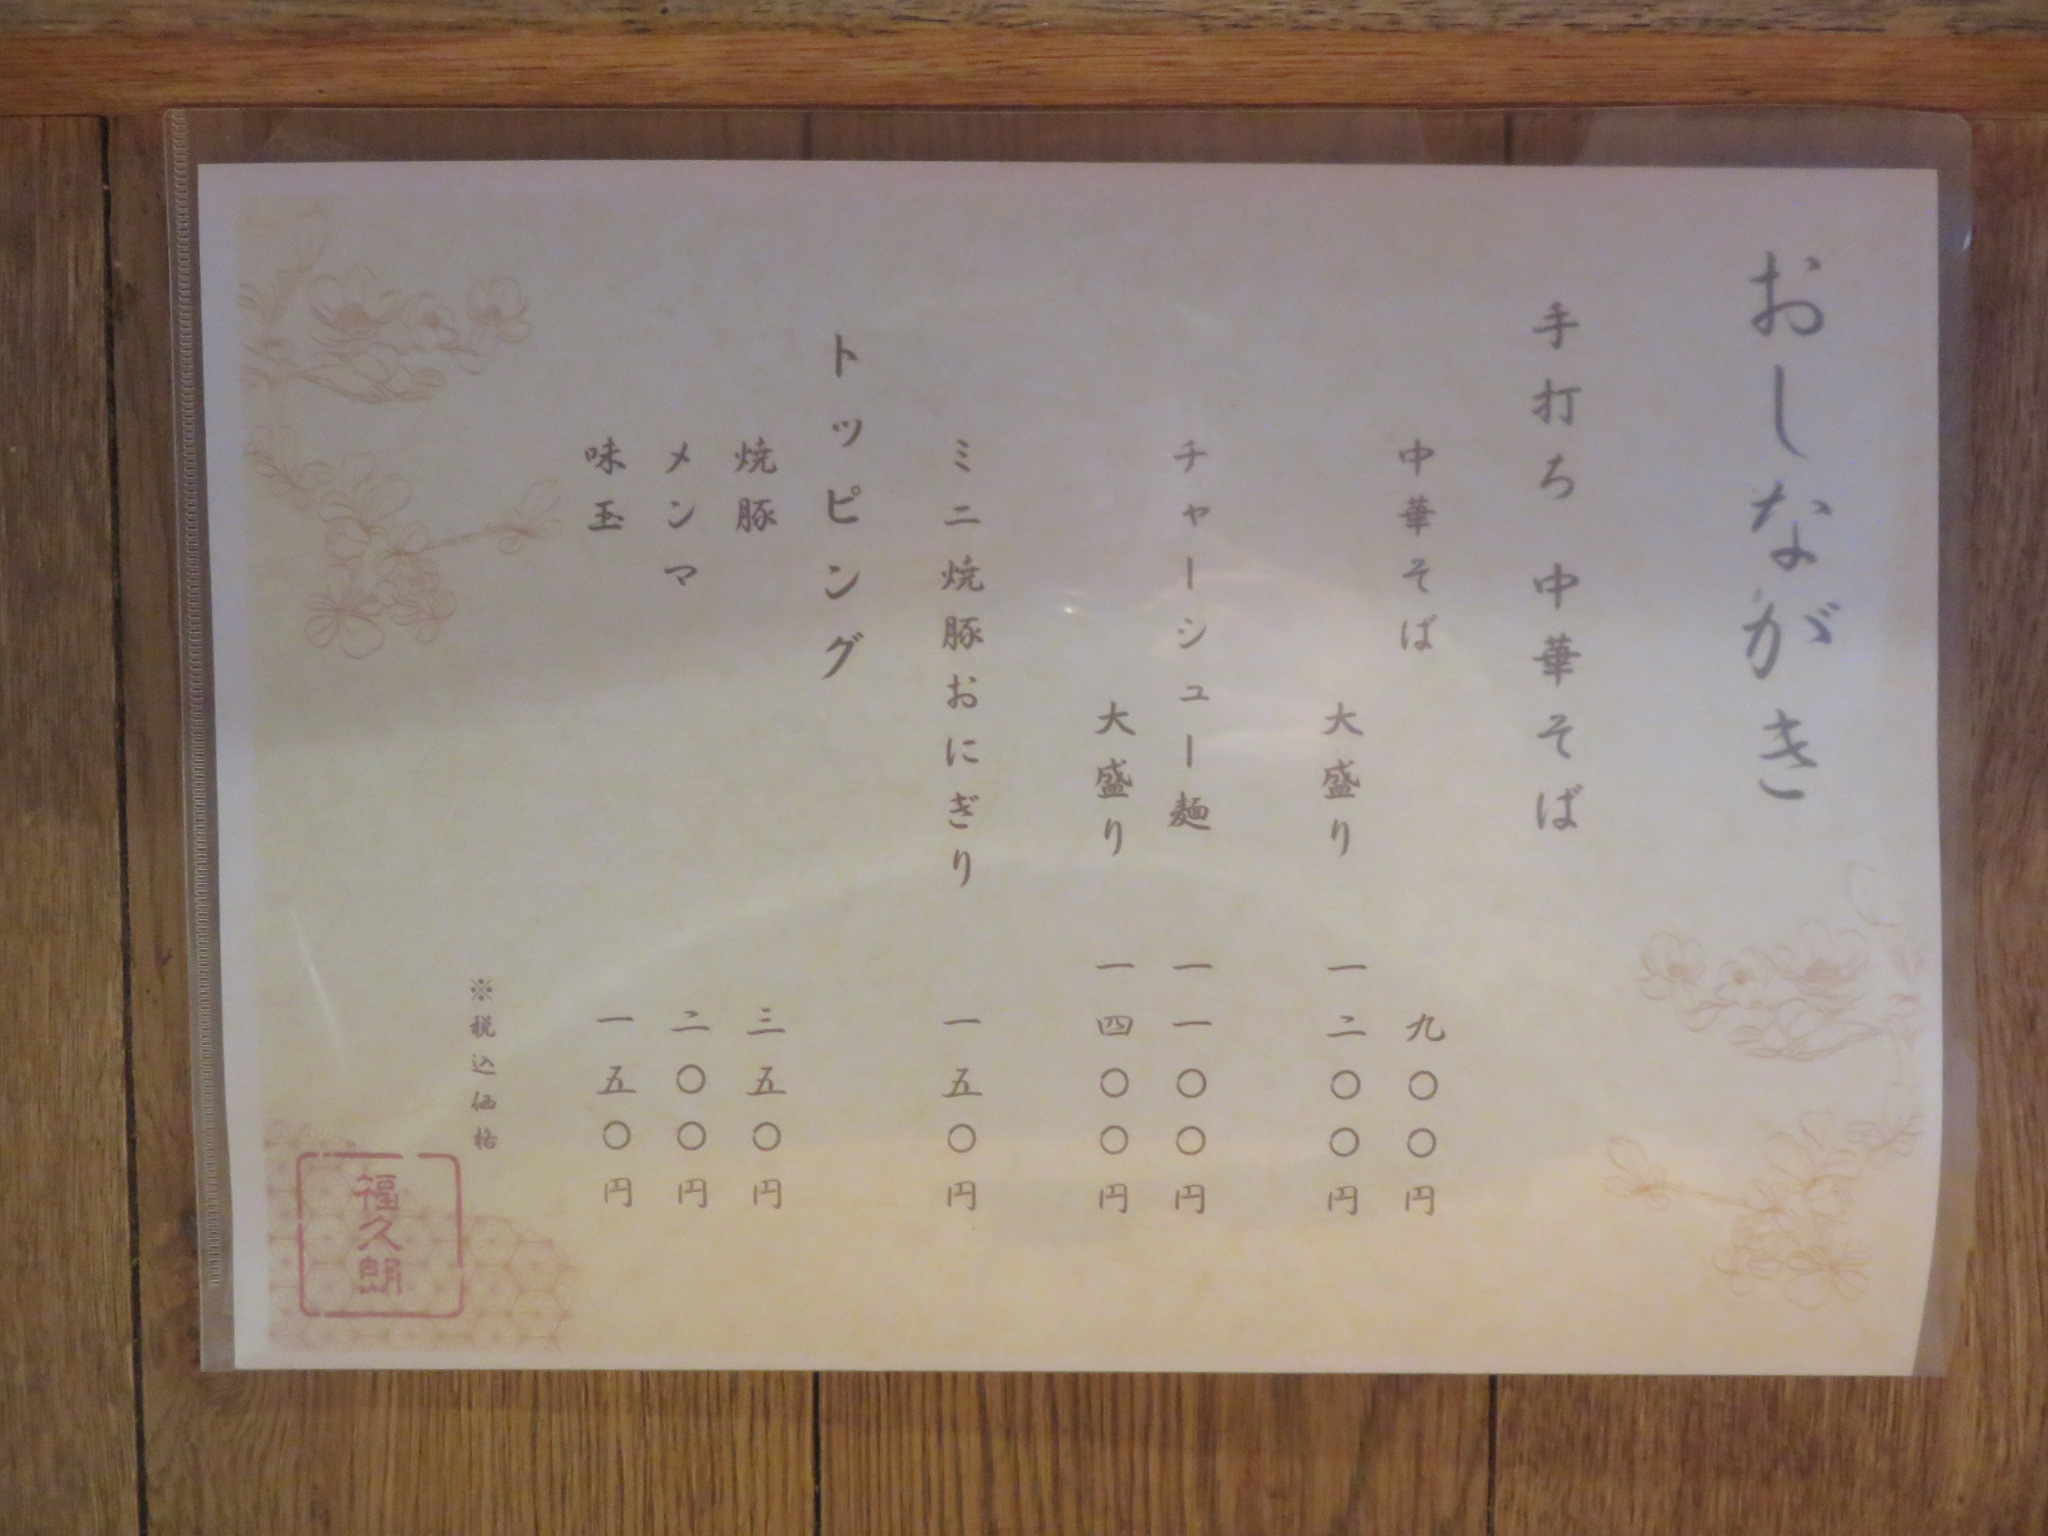 おしながき
手打ち 中華そば
中華そば 九〇〇円
大盛り 一二〇〇円
チャーシュー麺 一一〇〇円
大盛り 一四〇〇円
ミニ焼豚おにぎり 一五〇円
トッピング
焼豚 三五〇円
メンマ 二〇〇円
味玉 一五〇円
※税込価格
福久朗